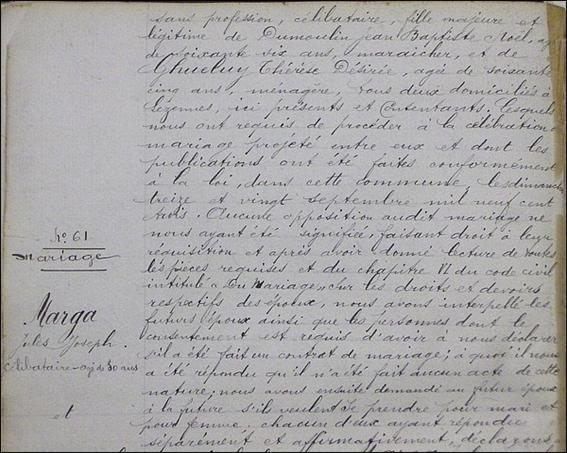 sans profession, célibataire, fille majeure et
légitime de Dumoulin Jean Baptiste Noël, agé
de soixante six ans, maraîcher, et de
Thérèse Désirée, agée de soixante
cinq ans, ménagère, tous deux domiciliés à
ici présents et consentants; lesquels
nous ont requis de procéder à la célébration d
mariage projeté entre eux et dont les
publications ont été faites conformément
à la loi, dans cette commune, les dimanches
treize et vingt septembre mil neuf cent
trois. Aucune opposition audit mariage ne
nous ayant été signifiée, faisant droit à leur
réquisition et après avoir donné lecture de toutes
les pièces requises et du chapitre VI du code civil
intitulé « Du Mariage », sur les droits et devoirs
respectifs des époux, nous avons interpellé les
futurs époux ainsi que les personnes dont le
consentement est requis d'avoir à nous déclarer
s'il a été fait un contrat de mariage; à quoi il nous
a été répondu qu'il n'a été fait aucun acte de cette
nature; nous avons ensuite demandé au futur époux
à la future s'ils veulent se prendre pour mari et
pour femme, chacun d'eux ayant répondu
séparément et affirmativement, déclarons
No 61
Mariage
Marga
Jules Joseph.
célibataire - agé de 30 ans
et